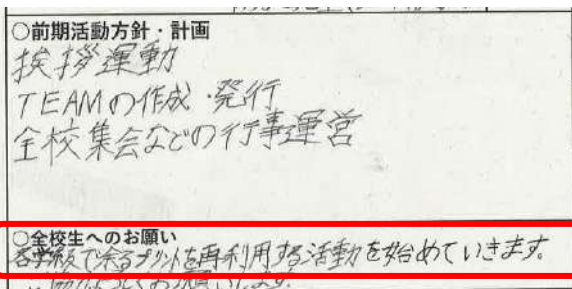 ○前期活動方針・計画
挨拶運動
TEAMの作成・発行
全校集会などの行事運営
○全校生へのお願い
各学級で余るプリントを再利用する活動を始めていきます。
お願いします。